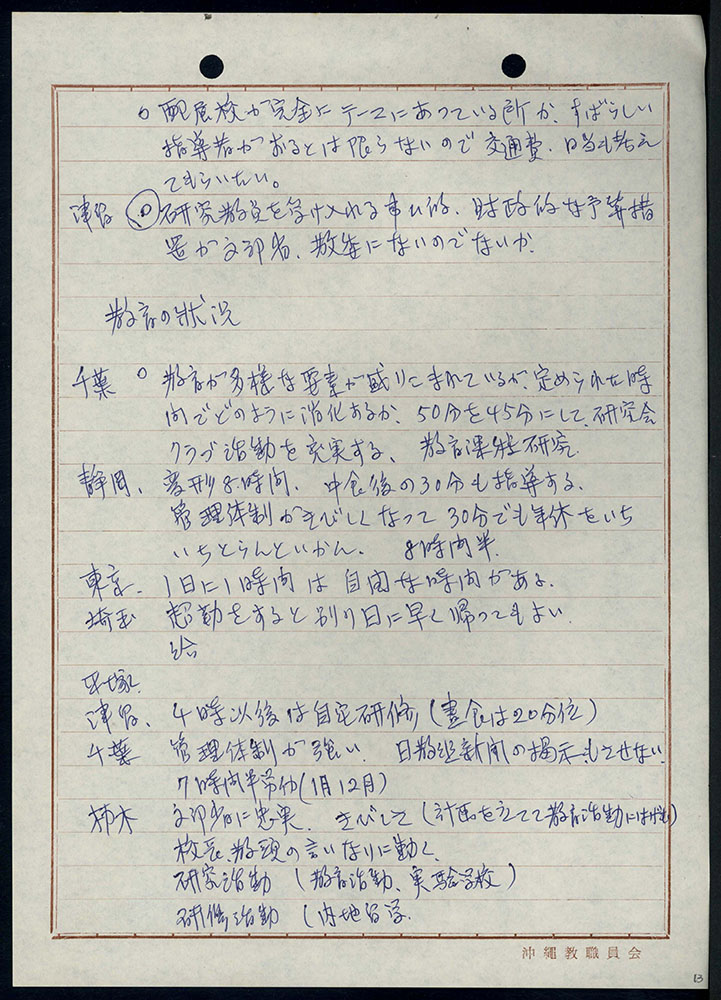 ○ 配属校が完全にテーマにあっている所か、すばらしい
指導者がおるとは限らないので交通費、日当も考え
てもらいたい。
津留 ○ 研究教員を受け入れる事ム的、財政的な予算措
置が文部省、教委にないのでないか
教育の状況
千葉 ○ 教育が多様な要素が盛りこまれているが、定められた時
間でどのように消化するか、50分を45分にして、研究会
クラブ活動を充実する、教育課程研究
静岡、変形8時間、中食後の30分も指導する、
管理体制がきびしくなって30分でも年休をいち
いちとらんといかん、 8時間半
東京、1日に1時間は自由な時間がある、
埼玉 超勤をすると別の日に早く帰ってもよい
給
平塚
津留、4時以後は自宅研修(昼食は20分位)
千葉 管理体制が強い、日教組新聞の掲示もさせない
7時間半労仂(1月12月)
柿木 文部省に忠実、きびしく(計画を立てて教育活動にはげむ)
校長、教頭の言いなりに動く、
研究活動 (教育活動、実験学校)
研修活動 (内地留学、
沖縄教職員会
13